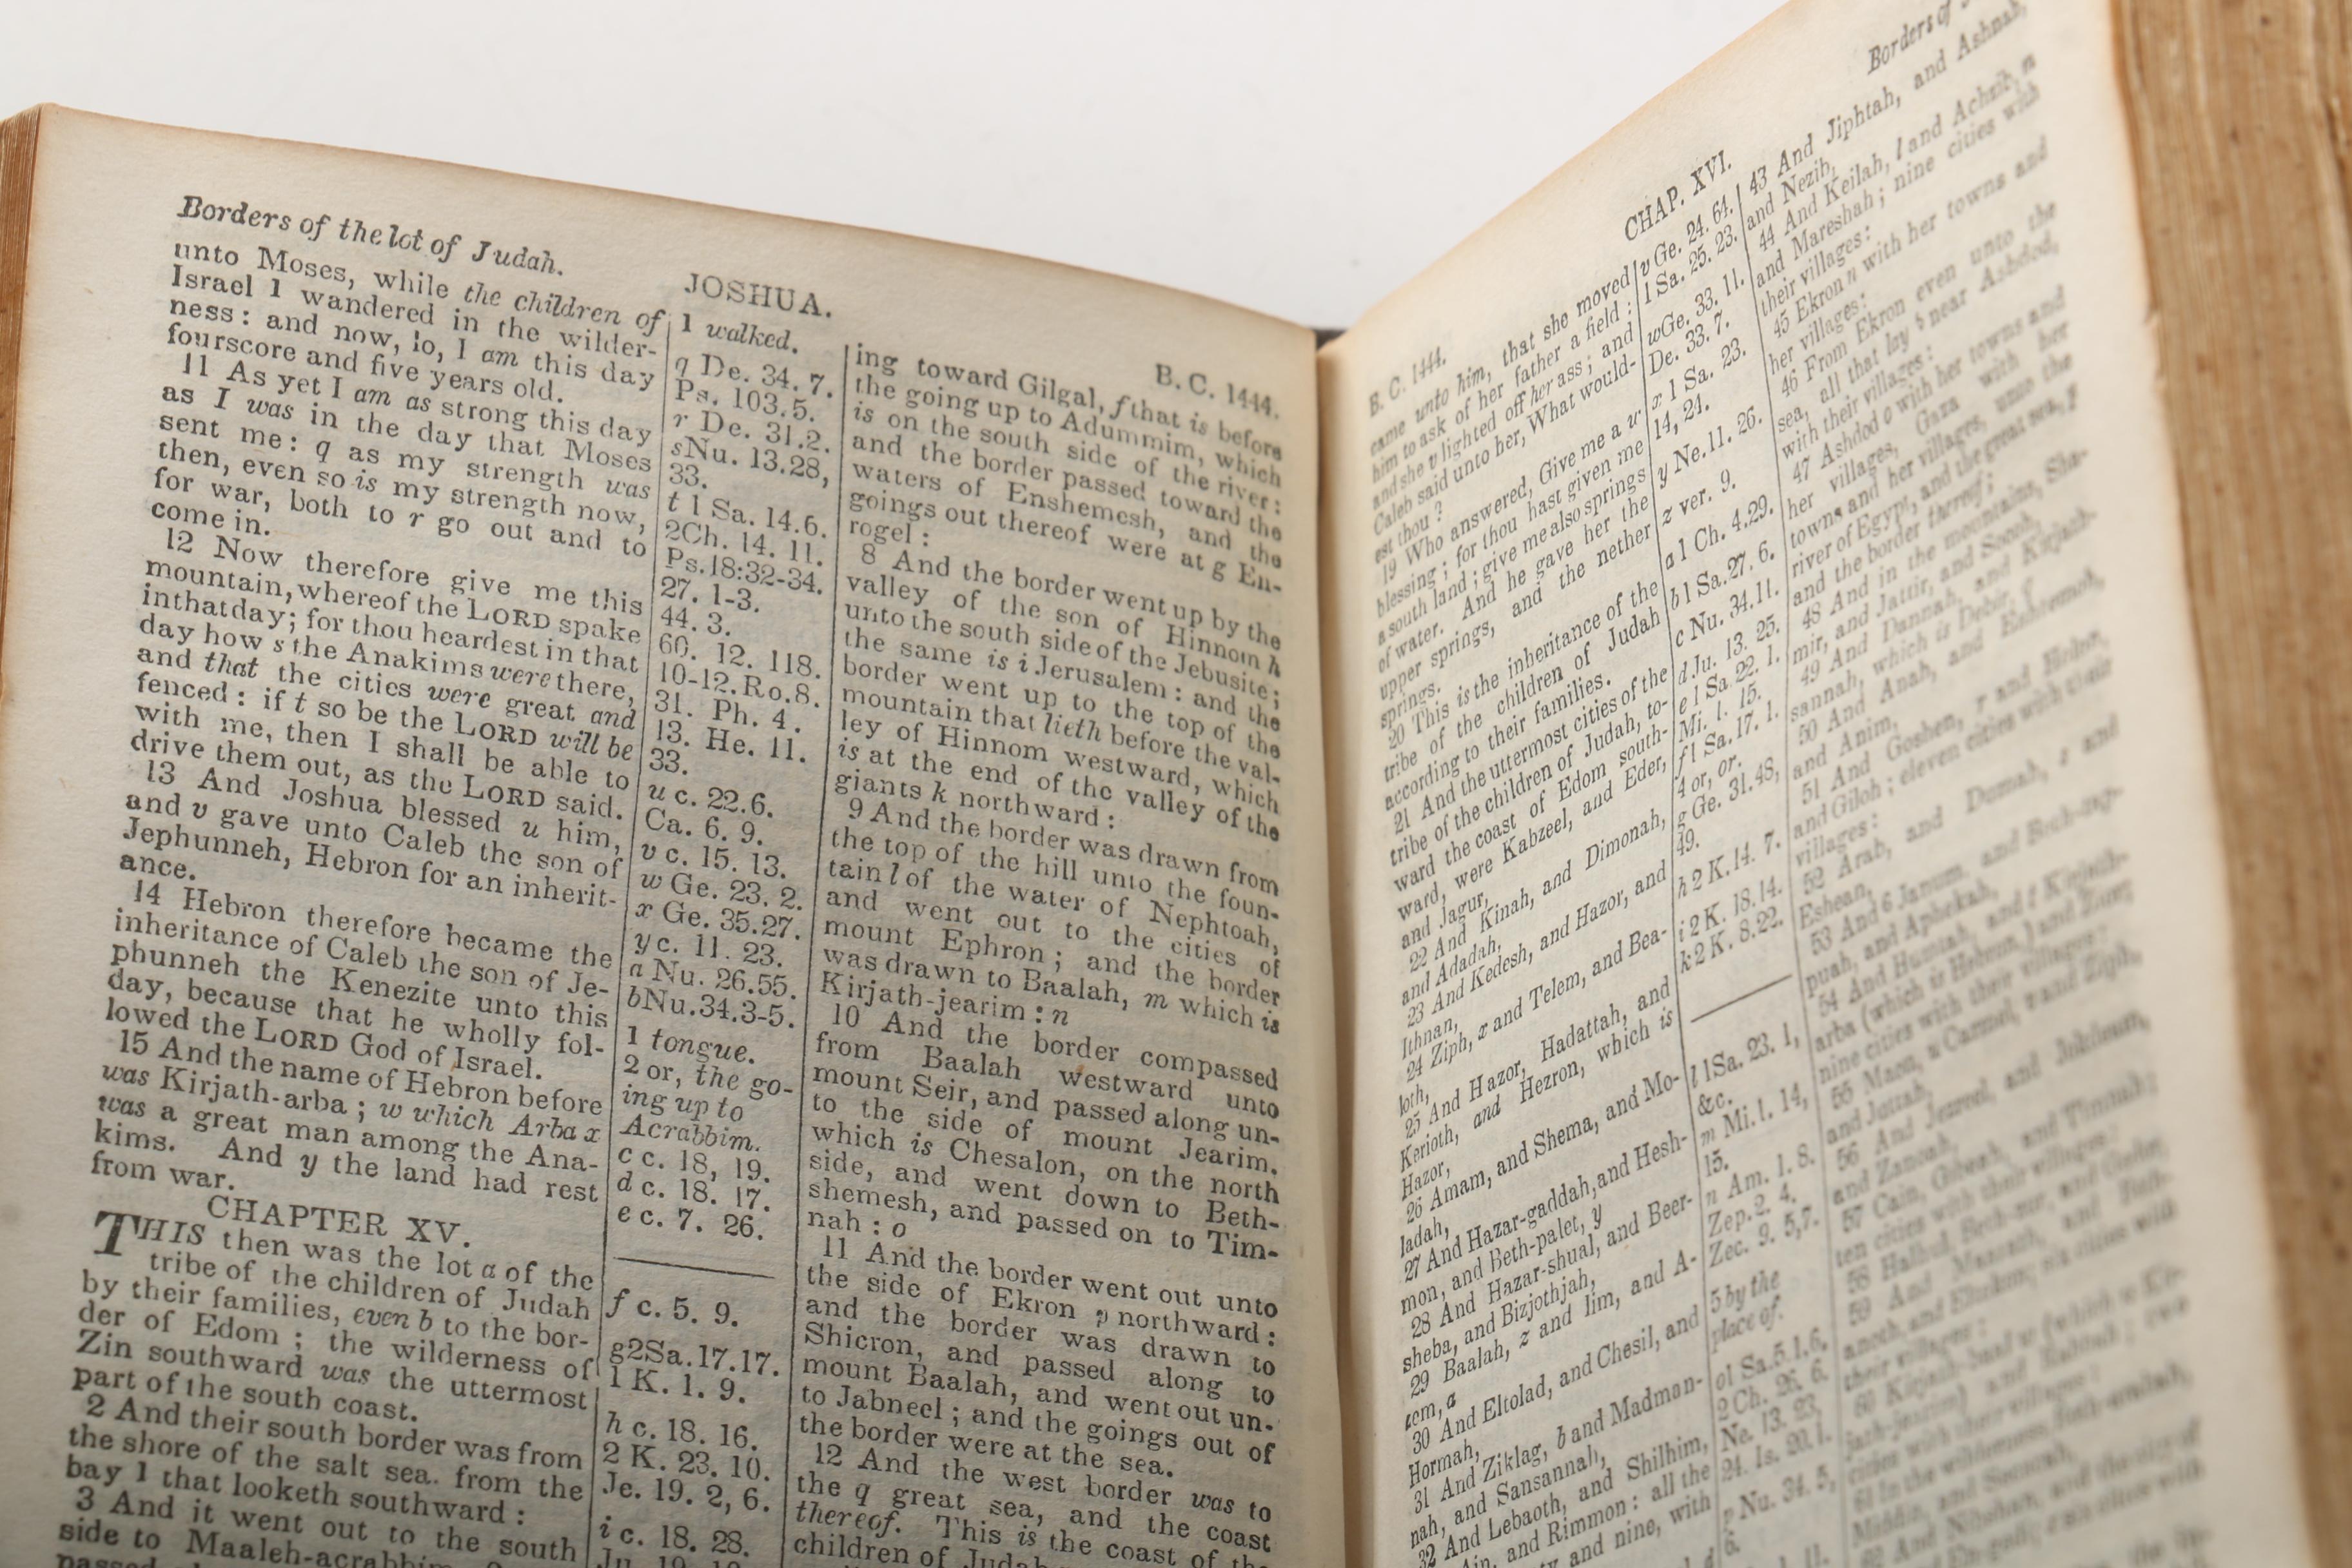 Borders of the lot of Judah.
JOSHUA.
B. C. 1444.
unto Moses, while the children of
Israel 1 wandered in the wilder-
ness: and now, lo, I am this day
fourscore and five years old.
11 As yet I am as strong this day
as I was in the day that Moses
sent me: q as my strength was
then, even so is my strength now,
for war, both to r go out and to
come in.
12 Now therefore give me this
mountain, whereof the LORD spake
in that day; for thou heardest in that
day how s the Anakims were there,
and that the cities were great and
fenced: if t so be the LORD will be
with me, then I shall be able to
drive them out, as the LORD said.
13 And Joshua blessed u him,
and v gave unto Caleb the son of
Jephunneh, Hebron for an inherit-
ance.
14 Hebron therefore became the
inheritance of Caleb the son of Je-
phunneh the Kenezite unto this
day, because that he wholly fol-
lowed the LORD God of Israel.
15 And the name of Hebron before
was Kirjath-arba; w which Arba x
was a great man among the Ana-
kims. And y the land had rest
from war.
CHAPTER XV.
THIS then was the lot a of the
tribe of the children of Judah
by their families, even b to the bor-
der of Edom; the wilderness of
Zin southward was the uttermost
part of the south coast.
2 And their south border was from
the shore of the salt sea. from the
bay 1 that looketh southward:
3 And it went out to the south
side to Maaleh-acrabbim,
passed
1 walked.
q De. 34. 7.
Ps. 103. 5.
r De. 31. 2.
s Nu. 13. 28,
33.
t 1 Sa. 14. 6.
2 Ch. 14. 11.
Ps. 18:32-34.
27. 1-3.
44. 3.
60. 12. 118.
10-12. Ro. 8.
31. Ph. 4.
13. He. 11.
33.
u c. 22. 6.
Ca. 6. 9.
v c. 15. 13.
w Ge. 23. 2.
x Ge. 35. 27.
y c. 11. 23.
a Nu. 26. 55.
b Nu. 34. 3-5.
1 tongue.
2 or, the go-
ing up to
Acrabbim.
c c. 18, 19.
d c. 18. 17.
e c. 7. 26.
f c. 5. 9.
g 2 Sa. 17. 17.
1 K. 1. 9.
h c. 18. 16.
2 K. 23. 10.
Je. 19. 2, 6.
i c. 18. 28.
ing toward Gilgal, f that is before
the going up to Adummim, which
is on the south side of the river:
and the border passed toward the
waters of Enshemesh, and the
goings out thereof were at g En-
rogel:
8 And the border went up by the
valley of the son of Hinnom h
unto the south side of the Jebusite;
the same is i Jerusalem: and the
border went up to the top of the
mountain that lieth before the val-
ley of Hinnom westward, which
is at the end of the valley of the
giants k northward:
9 And the border was drawn from
the top of the hill unto the foun-
tain l of the water of Nephtoah,
and went out to the cities of
mount Ephron; and the border
was drawn to Baalah, m which is
Kirjath-jearim: n
10 And the border compassed
from Baalah westward unto
mount Seir, and passed along un-
to the side of mount Jearim,
which is Chesalon, on the north
side, and went down to Beth-
shemesh, and passed on to Tim-
nah: o
11 And the border went out unto
the side of Ekron p northward:
and the border was drawn to
Shicron, and passed along to
mount Baalah, and went out un-
to Jabneel; and the goings out of
the border were at the sea.
12 And the west border was to
the q great sea, and the coast
thereof. This is the coast of the
children of Judah
B. C. 1444.
CHAP. XVI.
Borders of
came unto him, that she moved
him to ask of her father a field:
and she v lighted off her ass; and
Caleb said unto her, What would-
est thou?
19 Who answered, Give me a w
blessing; for thou hast given me
a south land; give me also springs
of water. And he gave her the
upper springs, and the nether
springs.
20 This is the inheritance of the
tribe of the children of Judah
according to their families.
21 And the uttermost cities of the
tribe of the children of Judah, to-
ward the coast of Edom south-
ward, were Kabzeel, and Eder,
and Jagur,
22 And Kinah, and Dimonah,
and Adadah,
23 And Kedesh, and Hazor, and
Ithnan,
24 Ziph, x and Telem, and Bea-
loth,
25 And Hazor, Hadattah, and
Kerioth, and Hezron, which is
Hazor,
26 Amam, and Shema, and Mo-
ladah,
27 And Hazar-gaddah, and Hesh-
mon, and Beth-palet, y
28 And Hazar-shual, and Beer-
sheba, and Bizjothjah,
29 Baalah, z and Iim, and A-
zem, a
30 And Eltolad, and Chesil, and
Hormah,
31 And Ziklag, b and Madman-
nah, and Sansannah,
32 And Lebaoth, and Shilhim,
and Rimmon: all the
and nine, with
v Ge. 24. 64.
1 Sa. 25. 23.
w Ge. 33. 11.
De. 33. 7.
x 1 Sa. 23.
14, 24.
y Ne. 11. 26.
z ver. 9.
a 1 Ch. 4. 29.
b 1 Sa. 27. 6.
c Nu. 34. 11.
d Ju. 13. 25.
e 1 Sa. 22. 1.
Mi. 1. 15.
f 1 Sa. 17. 1.
4 or, or.
g Ge. 31. 48,
49.
h 2 K. 14. 7.
i 2 K. 18. 14.
k 2 K. 8. 22.
l 1 Sa. 23. 1,
&c.
m Mi. 1. 14,
15.
n Am. 1. 8.
Zep. 2. 4.
Zec. 9. 5,7.
5 by the
place of.
o 1 Sa. 5. 1. 6.
2 Ch. 26. 6.
Ne. 13. 23,
24. Is. 20. 1.
p Nu. 34. 5,
6.
43 And Jiphtah, and Ashnah,
and Nezib,
44 And Keilah, l and Achzib, m
and Mareshah; nine cities with
their villages:
45 Ekron n with her towns and
her villages:
46 From Ekron even unto the
sea, all that lay 5 near Ashdod,
with their villages:
47 Ashdod o with her towns and
her villages, Gaza with her
towns and her villages, unto the
river of Egypt, and the great sea, p
and the border thereof:
48 And in the mountains, Sha-
mir, and Jattir, and Socoh,
49 And Dannah, and Kirjath-
sannah, which is Debir, q
50 And Anab, and Eshtemoh,
and Anim,
51 And Goshen, r and Holon,
and Giloh; eleven cities with their
villages:
52 Arab, and Dumah, s and
Eshean,
53 And 6 Janum, and Beth-tap-
puah, and Aphekah,
54 And Humtah, and t Kirjath-
arba (which is Hebron,) and Zior;
nine cities with their villages:
55 Maon, u Carmel, v and Ziph,
and Juttah,
56 And Jezreel, and Jokdeam,
and Zanoah,
57 Cain, Gibeah, and Timnah;
ten cities with their villages:
58 Halhul, Beth-zur, and Gedor,